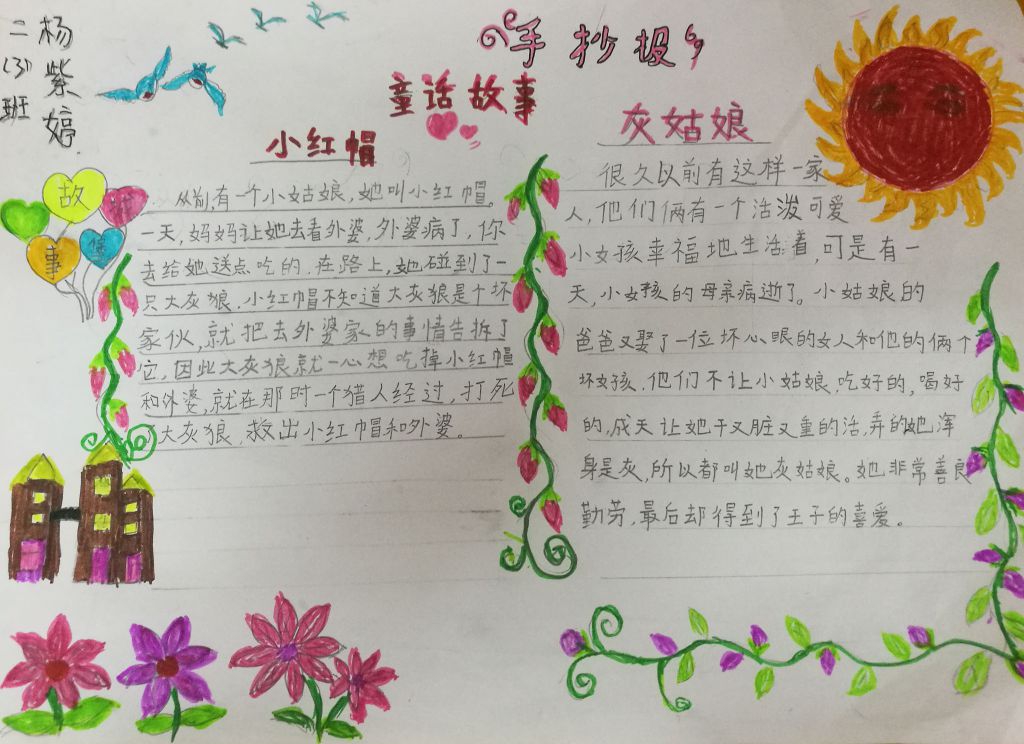 杨紫婷
二(3)班
手抄报
童话故事
小红帽
从前,有一个小姑娘,她叫小红帽。
一天,妈妈让她去看外婆,外婆病了,你
去给她送点吃的.在路上,她碰到了一
只大灰狼.小红帽不知道大灰狼是个坏
家伙,就把去外婆家的事情告拆了
它,因此大灰狼就一心想吃掉小红帽
和外婆,就在那时一个猎人经过,打死
大灰狼,救出小红帽和外婆。
灰姑娘
很久以前有这样一家
人,他们俩有一个活泼可爱
小女孩幸福地生活着,可是有一
天,小女孩的母亲病逝了。小姑娘的
爸爸又娶了一位坏心眼的女人和他的俩个
坏女孩.他们不让小姑娘吃好的,喝好
的,成天让她干又脏又重的活,弄的她浑
身是灰,所以都叫她灰姑娘。她非常善良
勤劳,最后却得到了王子的喜爱。
故
事